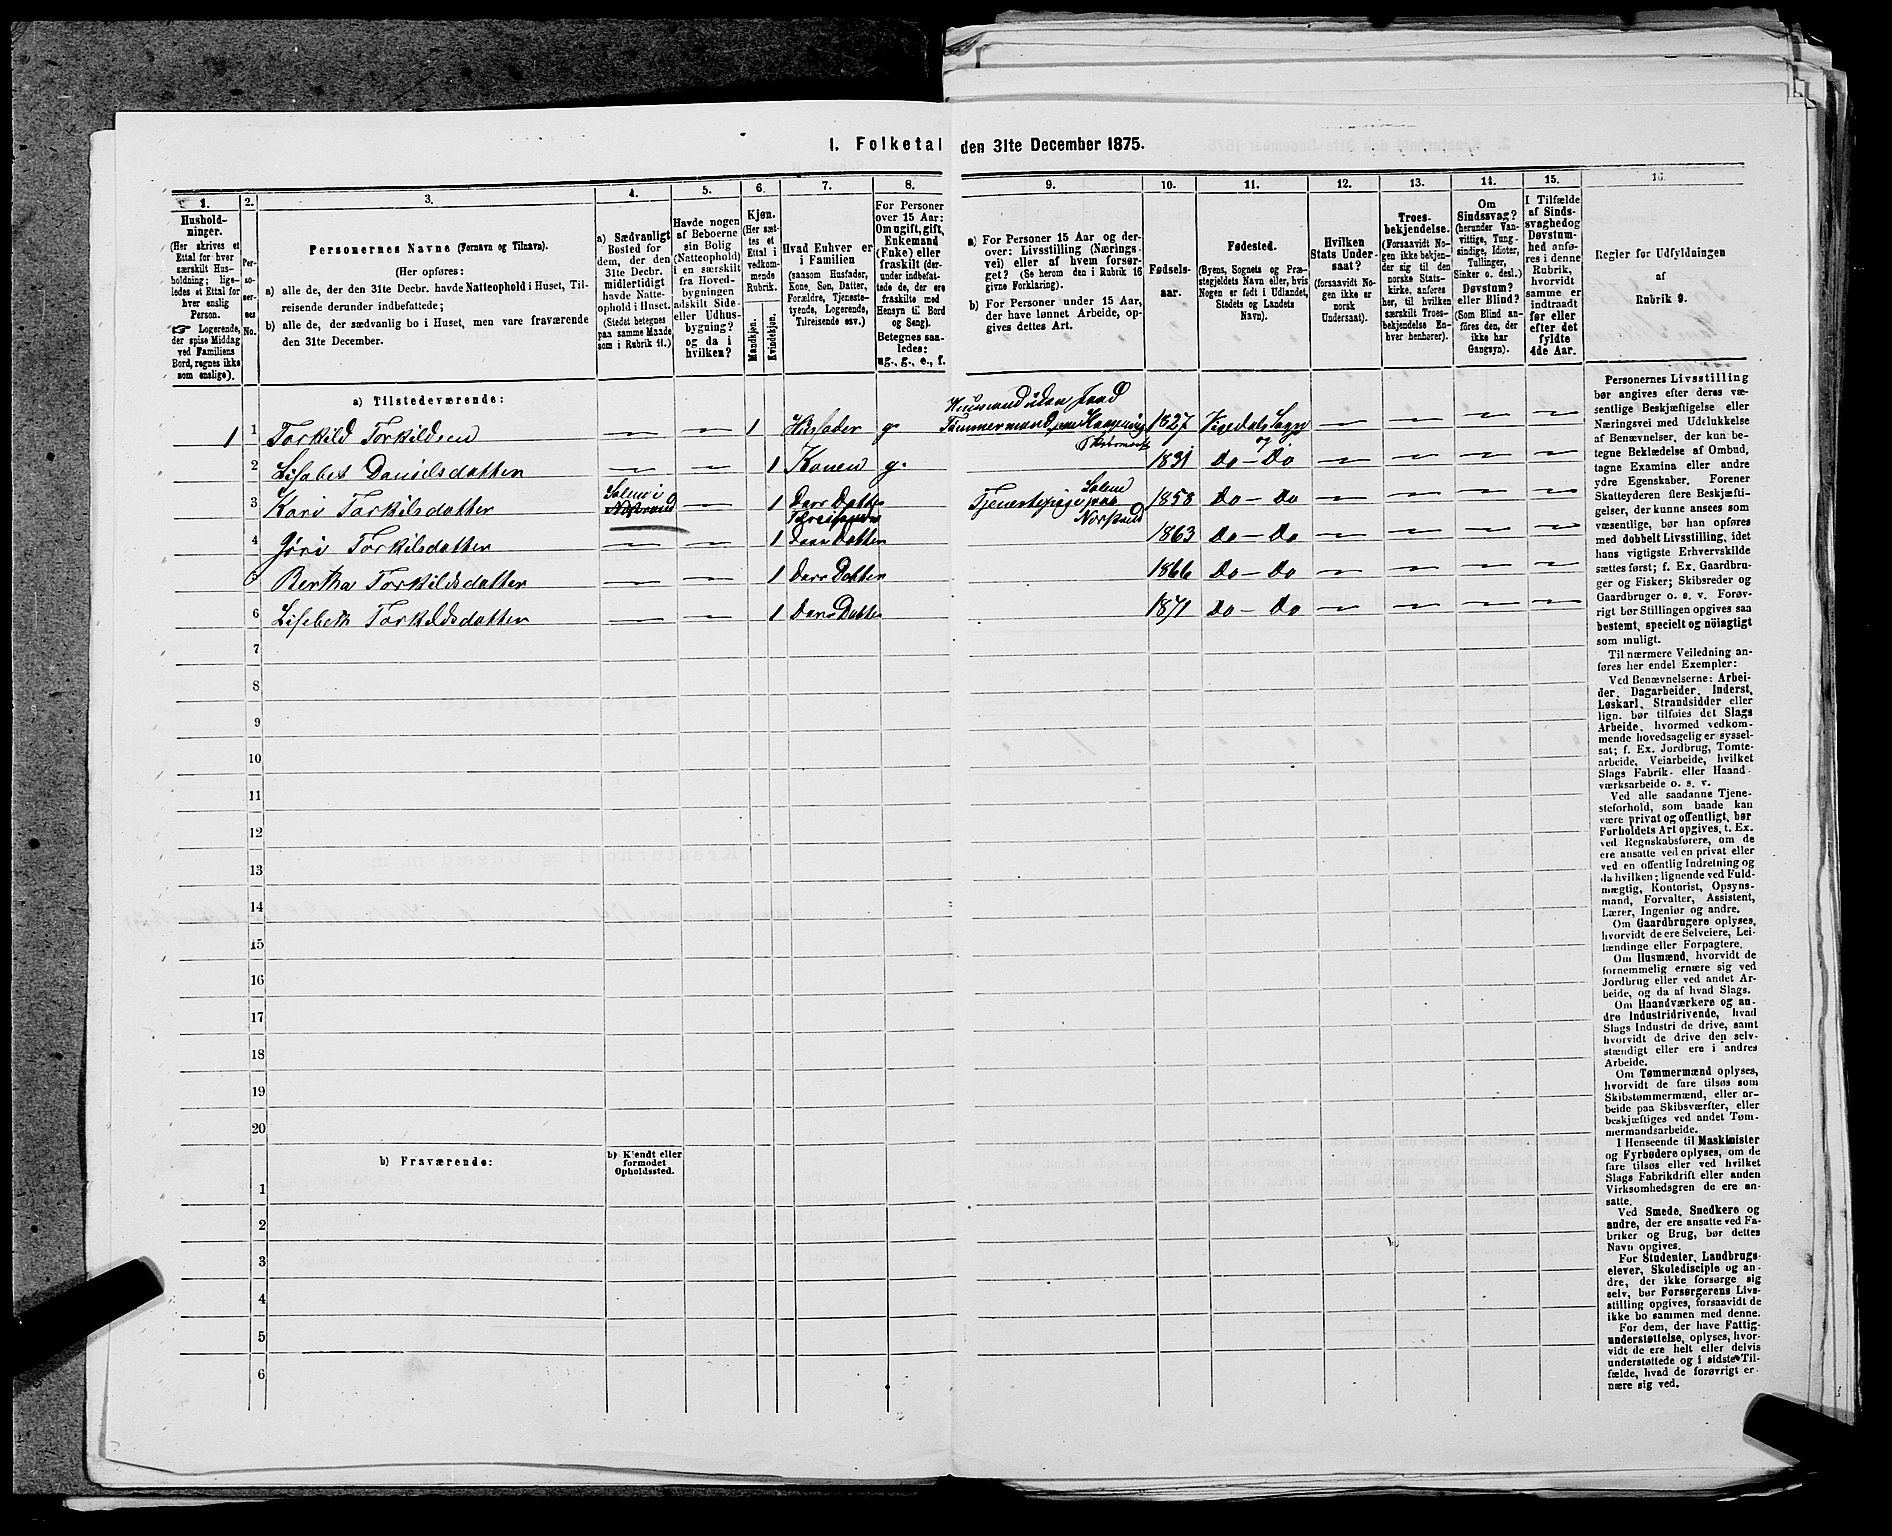 1. Folketal den 31te December 1875.
1. 2. 3. 4. 5. 6. 7. 8. 9. 10. 11. 12. 13. 14. 15. 16.
Hushold-
ninger.
(Her skrives et
Ettal for hver
særskilt Hus-
holdning; lige-
ledes et Ettal for
hver enslig
Person.
☞ Logerende,
der spise Middag
ved Familiens
Bord, regnes ikke
som enslige).
Per-
so-
ner-
nes
No.
Personernes Navne (Fornavn og Tilnavn).
(Her opføres:
a) alle de, der den 31te Decbr. havde Natteophold i Huset, Til-
reisende derunder indbefattede;
b) alle de, der sædvanlig bo i Huset, men vare fraværende
den 31te December.
a) Sædvanligt
Bosted for
dem, der den
31te Decbr.
midlertidigt
havde Natte-
ophold i Huset.
(Stedet betegnes
paa samme Maade
som i Rubrik 11.)
Havde nogen
af Beboerne
sin Bolig
(Natteophold)
i en særskilt
fra Hoved-
bygningen
adskilt Side-
eller Udhus-
bygning?
og da i
hvilken?
Kjøn.
(Her sæt-
tes et
Ettal i
vedkom-
mende
Rubrik.
Mandkjøn.
Kvindekjøn.
Hvad Enhver er
i Familien
(saasom Husfader,
Kone, Søn, Datter,
Forældre, Tjeneste-
tyende, Logerende,
Tilreisende osv.)
For Personer
over 15 Aar:
Om ugift, gift,
Enkemand
(Enke) eller
fraskilt (der-
under indbefat-
tede de, der ere
fraskilte med
Hensyn til Bord
og Seng).
Betegnes saa-
ledes:
ug., g., e., f.
a) For Personer 15 Aar og der-
over: Livsstilling (Nærings-
vei) eller af hvem forsør-
get? (Se herom den i Rubrik 16
givne Forklaring).
b) For Personer under 15 Aar,
der have lønnet Arbeide, op-
gives dettes Art.
Fødsels-
aar.
Fødested.
(Byens, Sognets og Præ-
stegjeldets Navn eller, hvis
Nogen er født i Udlandet,
Stedets og Landets
Navn).
Hvilken
Stats Under-
saat?
(forsaavidt No-
gen ikke er
norsk
Undersaat).
Troes-
bekjendelse.
(Forsaavidt No-
gen ikke bekjen-
der sig til den
norske Stats-
kirke, anføres
her, til hvilken
særskilt Troes-
bekjendelse En-
hver henhører).
Om
Sindssvag?
(herunder Van-
vittige, Tung-
sindige, Idioter,
Tullinger,
Sinker o. desl.)
Døvstum?
eller Blind?
(Som Blind an-
føres den, der
ikke har
Gangsyn).
I Tilfælde
af Sinds-
svaghed og
Døvstum-
hed anfø-
res i denne
Rubrik,
hvorvidt
samme er
indtraadt
før eller
efter det
fyldte
4de Aar.
Regler for Udfyldningen
af
Rubrik 9.
a) Tilstedeværende:
Husmand uden Jord
1 1 Torkild Torkildsen — — 1 Husfader g. Tømmermand 1827 Vegedals Sogn — — — —
og
2 Lisabet Danielsdatter — — 1 Konen g. 1831 Do — Do — — — —
3 Kari Torkilsdatter — 1 Deres Datter Tjenestepige paa 1853 Do — Do — — — —
Tilreisende
4 Gøri Torkilsdatter — — 1 Deres Datter 1863 Do — Do — — — —
5 Bertha Torkildsdatter — — 1 Deres Datter 1866 Do — Do — — — —
6 Lisebeth Torkildsdatter — — 1 Deres Datter 1871 Do — Do — — — —
7
8
9
10
11
12
13
14
15
16
17
18
19
20
b) Fraværende:
b) Kjendt eller
formodet
Opholdssted.
1
2
3
4
5
6
Personernes Livsstilling
bør angives efter deres væ-
sentlige Beskjæftigelse eller
Næringsvei med Udelukkelse
af Benævnelser, der kun be-
tegne Beklædelse af Ombud,
tagne Examina eller andre
ydre Egenskaber. Forener
Skatteyderen flere Beskjæfti-
gelser, der kunne ansees som
væsentlige, bør han opføres
med dobbelt Livsstilling, idet
hans vigtigste Erhvervskilde
sættes først; f. Ex. Gaardbru-
ger og Fisker; Skibsreder og
Gaardbruger o. s. v. Forøv-
rigt bør Stillingen opgives saa
bestemt, specielt og nøiagtigt
som muligt.
Til nærmere Veiledning an-
føres her endel Exempler:
Ved Benævnelserne: Arbei-
der, Dagarbeider, Inderst,
Løskarl, Strandsidder eller
lign. bør tilføies det Slags
Arbeide, hvormed vedkom-
mende hovedsagelig er syssel-
sat; f. Ex. Jordbrug, Tomte-
arbeide, Veiarbeide, hvilket
Slags Fabrik- eller Haand-
værksarbeide o. s. v.
Ved alle saadanne Tjene-
steforhold, som baade kan
være privat og offentligt, bør
Forholdets Art opgives, t. Ex.
ved Regnskabsførere, om de
ere ansatte ved en privat eller
ved en offentlig Indretning og
da hvilken; lignende ved Fuld-
mægtig, Kontorist, Opsyns-
mand, Forvalter, Assistent,
Lærer, Ingeniør og andre.
Om Gaardbrugere oplyses,
hvorvidt de ere Selveiere, Lei-
lændinge eller Forpagtere.
Om Husmænd, hvorvidt de
fornemmelig ernære sig ved
Jordbrug eller ved andet Ar-
beide, og da af hvad Slags.
Om Haandværkere og an-
dre Industridrivende, hvad
Slags Industri de drive, samt
hvorvidt de drive den selv-
stændigt eller ere i andres
Arbeide.
Om Tømmermænd oplyses,
hvorvidt de fare tilsøs som
Skibstømmermænd, eller ar-
beide paa Skibsværfter, eller
beskjæftiges ved andet Tøm-
mermandsarbeide.
I Henseende til Maskinister
og Fyrbødere oplyses, om de
fare tilsøs eller ved hvilket
Slags Fabrikdrift eller anden
Virksomhedsgren de ere an-
satte.
Ved Smede, Snedkere og
andre, der ere ansatte ved Fa-
briker og Brug, bør dettes
Navn opgives.
For Studenter, Landbrugs-
elever, Skoledisciple og an-
dre, der ikke forsørge sig
selv, bør Forsørgerens Livs-
stilling opgives, forsaavidt de
ikke bo sammen med denne.
For dem, der have Fattig-
understøttelse, oplyses, hvor-
vidt de ere helt eller delvis
understøttede og i sidste Til-
fælde, hvad de forøvrigt er-
nære sig ved.